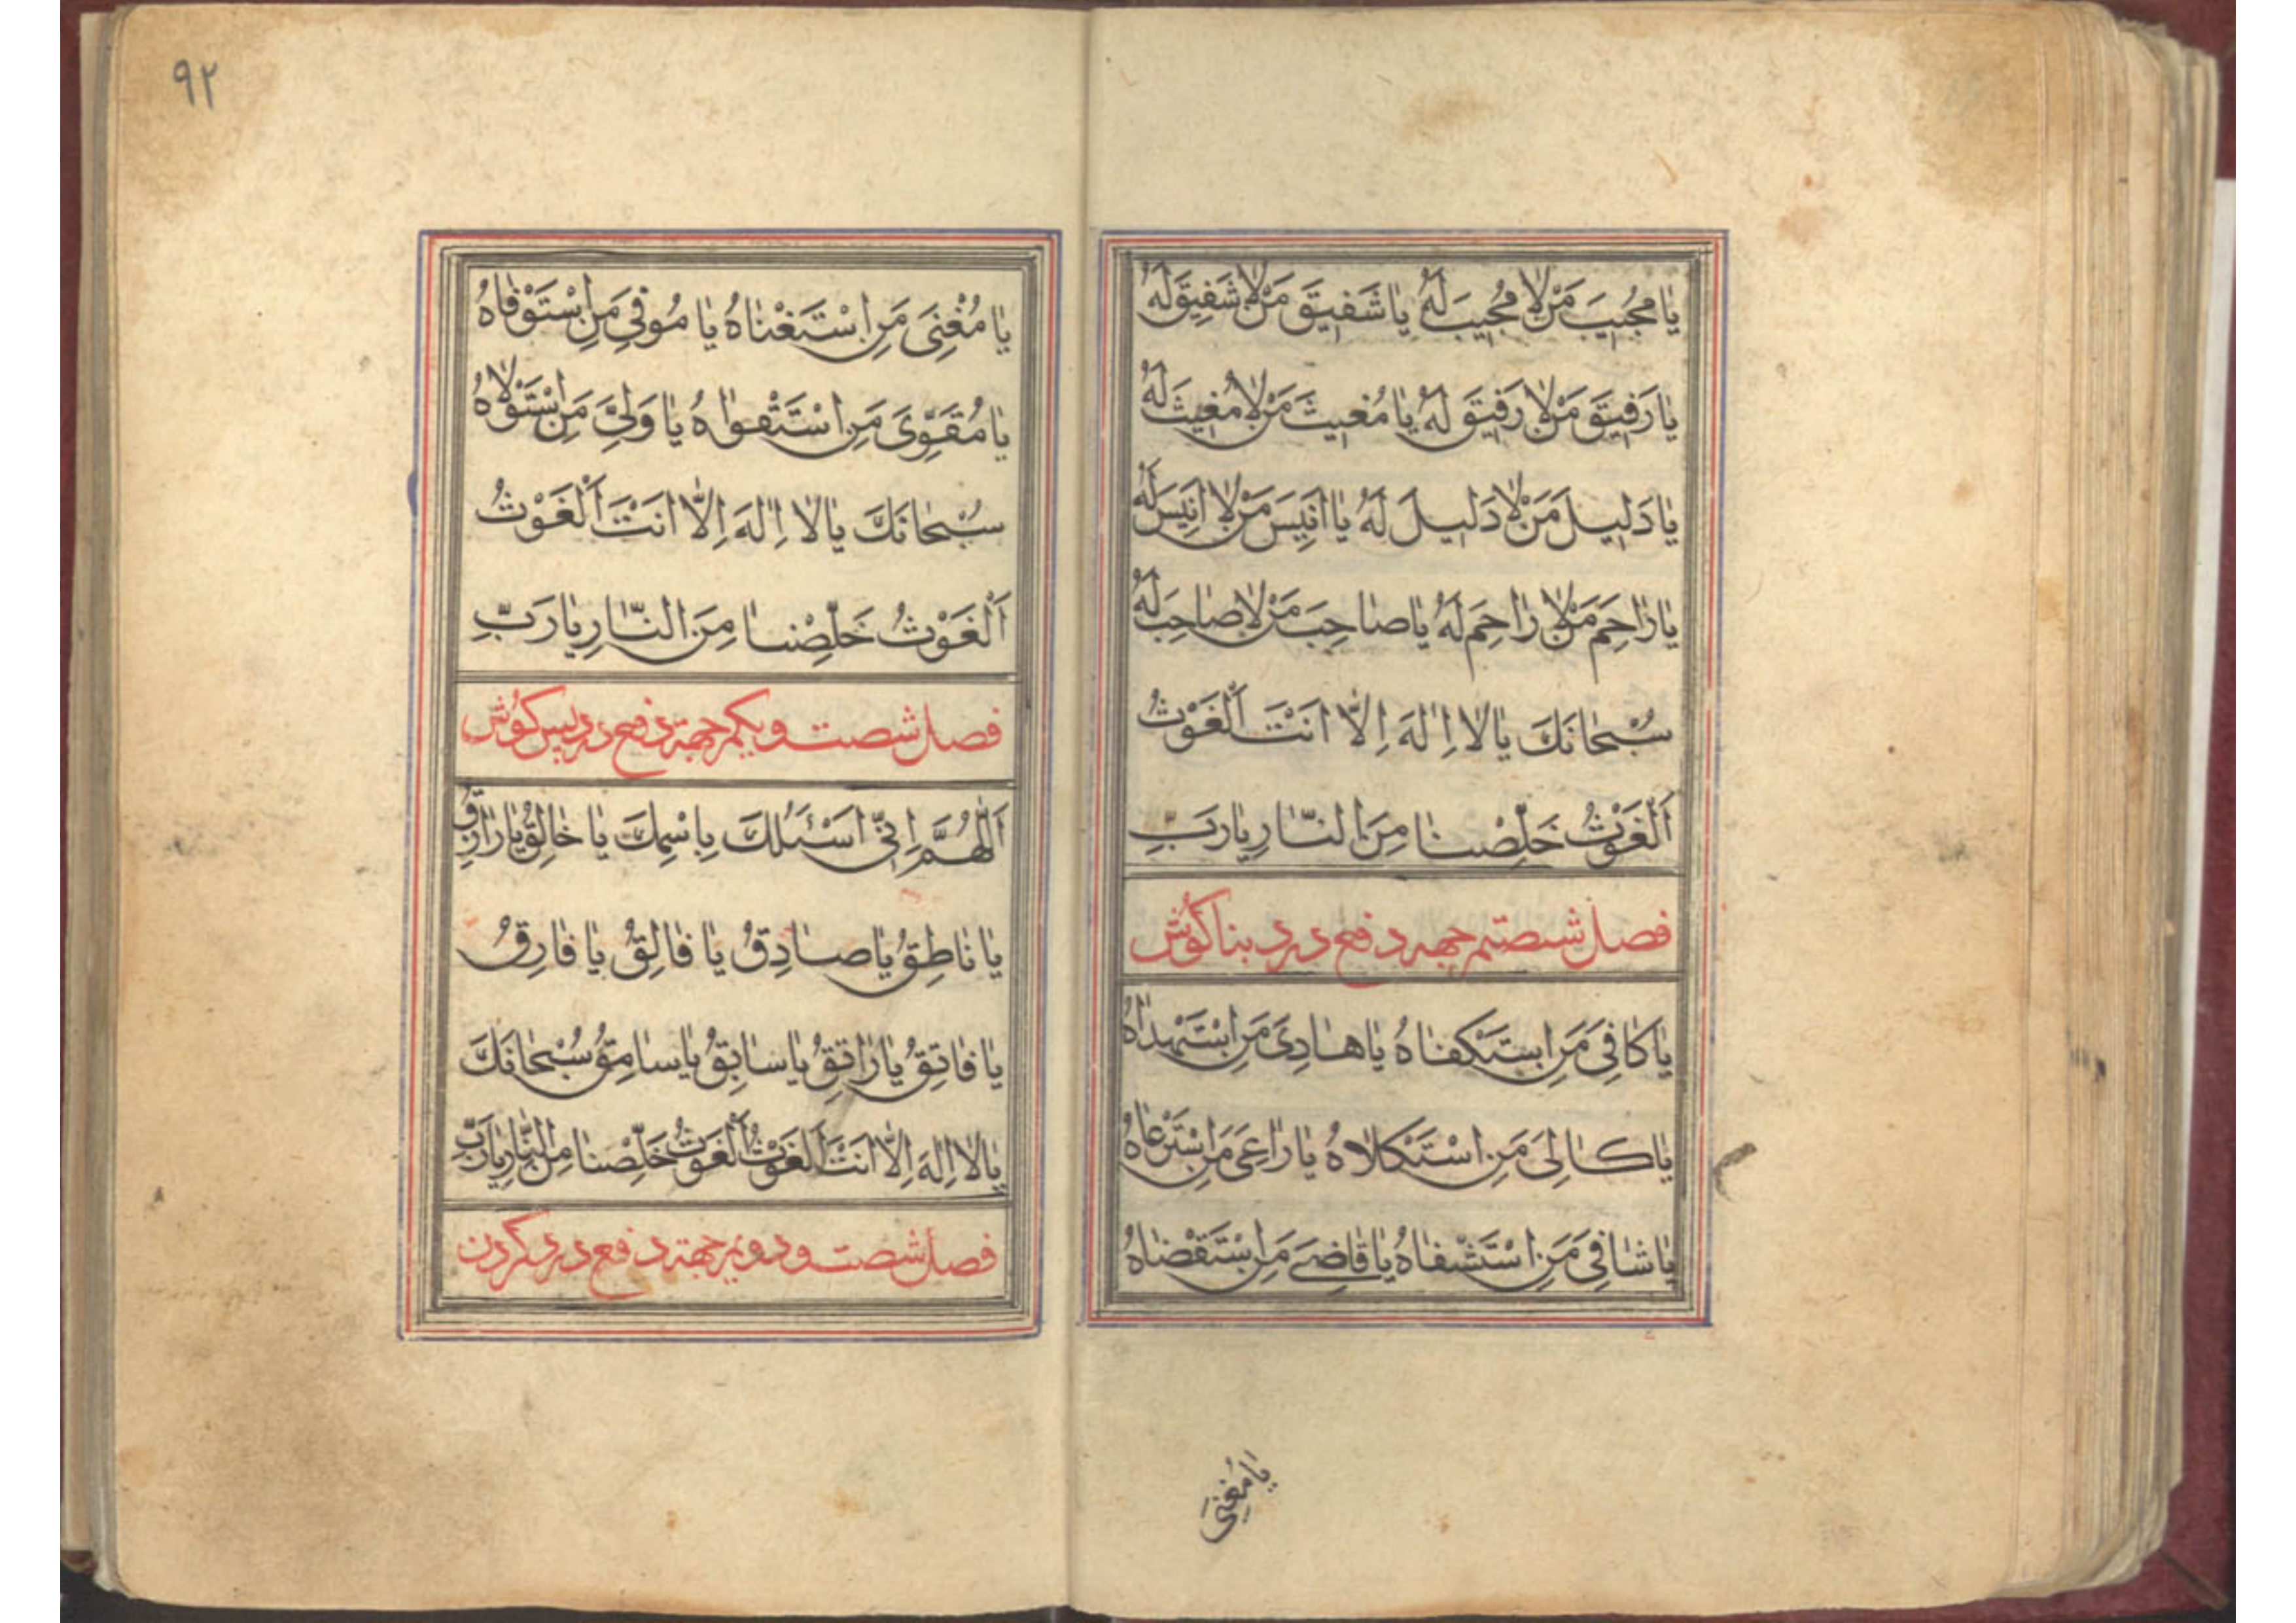 يٰا مُجيبَ مَنْ لٰا مُجيبَ لَهُ يٰا شَفيقَ مَنْ لٰا شَفيقَ لَهُ
يٰا رَفيقَ مَنْ لٰا رَفيقَ لَهُ يٰا مُغيثَ مَنْ لٰا مُغيثَ لَهُ
يٰا دَليلَ مَنْ لٰا دَليلَ لَهُ يٰا اَنيسَ مَنْ لٰا اَنيسَ لَهُ
يٰا رٰاحِمَ مَنْ لٰا رٰاحِمَ لَهُ يٰا صٰاحِبَ مَنْ لٰا صٰاحِبَ لَهُ
سُبْحٰانَكَ يٰا لٰا اِلٰهَ اِلّٰا اَنْتَ اَلْغَوْثُ
اَلْغَوْثُ خَلِّصْنٰا مِنَ النّٰارِ يٰا رَبِّ
فصل شصتم جهه دفع درد بناكوش
يٰا كٰافِىَ مَنِ اسْتَكْفٰاهُ يٰا هٰادِىَ مَنِ اسْتَهْدٰاهُ
يٰا كٰالِىَ مَنِ اسْتَكْلاٰهُ يٰا رٰاعِىَ مَنِ اسْتَرْعٰاهُ
يٰا شٰافِىَ مَنِ اسْتَشْفٰاهُ يٰا قٰاضِىَ مَنِ اسْتَقْضٰاهُ
يٰا مُغْنِىَ
٩٢
يٰا مُغْنِىَ مَنِ اسْتَغْنٰاهُ يٰا مُوفِىَ مَنِ اسْتَوْفٰاهُ
يٰا مُقَوِّىَ مَنِ اسْتَقْوٰاهُ يٰا وَلِىَّ مَنِ اسْتَوْلاٰهُ
سُبْحٰانَكَ يٰا لٰا اِلٰهَ اِلّٰا اَنْتَ اَلْغَوْثُ
اَلْغَوْثُ خَلِّصْنٰا مِنَ النّٰارِ يٰا رَبِّ
فصل شصت و يكم جهته دفع درد پس كوش
اَللّٰهُمَّ اِنّى اَسْئَلُكَ بِاسْمِكَ يٰا خٰالِقُ يٰا رٰازِقُ
يٰا نٰاطِقُ يٰا صٰادِقُ يٰا فٰالِقُ يٰا فٰارِقُ
يٰا فٰاتِقُ يٰا رٰاتِقُ يٰا سٰابِقُ يٰا سٰامِقُ سُبْحٰانَكَ
يٰا لٰا اِلٰهَ اِلّٰا اَنْتَ اَلْغَوْثُ اَلْغَوْثُ خَلِّصْنٰا مِنَ النّٰارِ يٰا رَبِّ
فصل شصت و دويم جهته دفع درد كردن